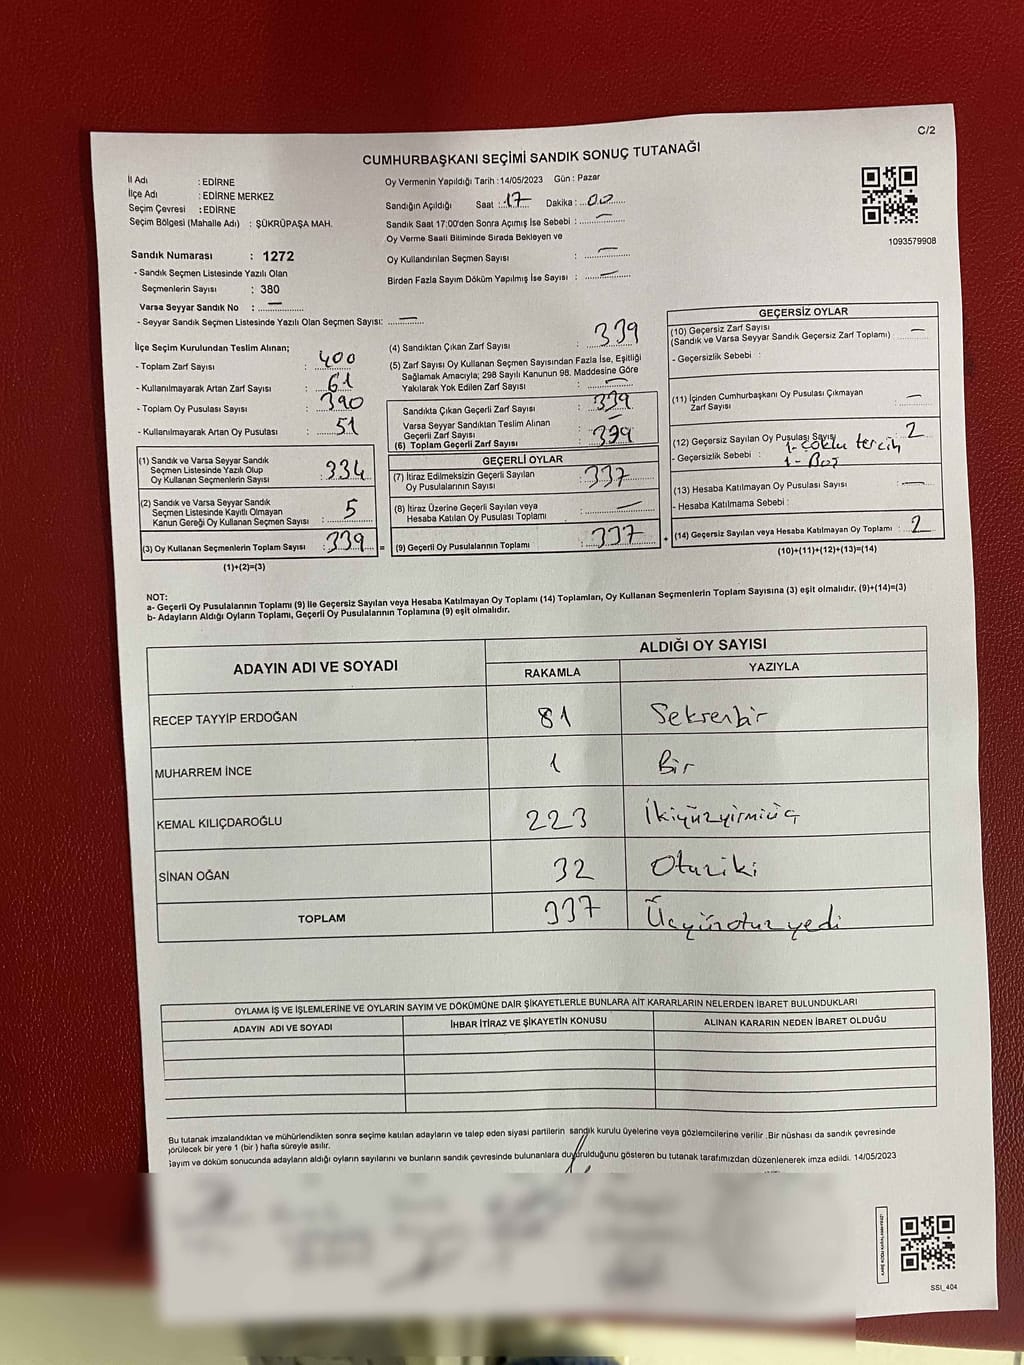 C/2
CUMHURBAŞKANI SEÇİMİ SANDIK SONUÇ TUTANAĞI
İl Adı : EDİRNE
İlçe Adı : EDİRNE MERKEZ
Seçim Çevresi : EDİRNE
Seçim Bölgesi (Mahalle Adı) : ŞÜKRÜPAŞA MAH.
Oy Vermenin Yapıldığı Tarih : 14/05/2023 Gün : Pazar
Sandığın Açıldığı Saat : 17 Dakika : 00
Sandık Saat 17:00'den Sonra Açımış İse Sebebi : —
Oy Verme Saati Bitiminde Sırada Bekleyen ve
Oy Kullandırılan Seçmen Sayısı : —
Birden Fazla Sayım Döküm Yapılmış İse Sayısı : —
1093579908
Sandık Numarası : 1272
- Sandık Seçmen Listesinde Yazılı Olan
Seçmenlerin Sayısı : 380
Varsa Seyyar Sandık No : —
- Seyyar Sandık Seçmen Listesinde Yazılı Olan Seçmen Sayısı: —
İlçe Seçim Kurulundan Teslim Alınan;
- Toplam Zarf Sayısı : 400
- Kullanılmayarak Artan Zarf Sayısı : 61
- Toplam Oy Pusulası Sayısı : 390
- Kullanılmayarak Artan Oy Pusulası : 51
(1) Sandık ve Varsa Seyyar Sandık
Seçmen Listesinde Yazılı Olup
Oy Kullanan Seçmenlerin Sayısı : 334
(2) Sandık ve Varsa Seyyar Sandık
Seçmen Listesinde Kayıtlı Olmayan
Kanun Gereği Oy Kullanan Seçmen Sayısı : 5
(3) Oy Kullanan Seçmenlerin Toplam Sayısı : 339 =
(1)+(2)=(3)
(4) Sandıktan Çıkan Zarf Sayısı : 339
(5) Zarf Sayısı Oy Kullanan Seçmen Sayısından Fazla İse, Eşitliği
Sağlamak Amacıyla; 298 Sayılı Kanunun 98. Maddesine Göre
Yakılarak Yok Edilen Zarf Sayısı : —
Sandıkta Çıkan Geçerli Zarf Sayısı : 339
Varsa Seyyar Sandıktan Teslim Alınan
Geçerli Zarf Sayısı : —
(6) Toplam Geçerli Zarf Sayısı : 339
GEÇERLİ OYLAR
(7) İtiraz Edilmeksizin Geçerli Sayılan
Oy Pusulalarının Sayısı : 337
(8) İtiraz Üzerine Geçerli Sayılan veya
Hesaba Katılan Oy Pusulası Toplamı : —
(9) Geçerli Oy Pusulalarının Toplamı : 337 +
GEÇERSİZ OYLAR
(10) Geçersiz Zarf Sayısı
(Sandık ve Varsa Seyyar Sandık Geçersiz Zarf Toplamı) —
- Geçersizlik Sebebi :
(11) İçinden Cumhurbaşkanı Oy Pusulası Çıkmayan
Zarf Sayısı —
(12) Geçersiz Sayılan Oy Pusulası Sayısı 2
- Geçersizlik Sebebi : 1- çoklu tercih
1- Boş
(13) Hesaba Katılmayan Oy Pusulası Sayısı —
- Hesaba Katılmama Sebebi :
(14) Geçersiz Sayılan veya Hesaba Katılmayan Oy Toplamı : 2
(10)+(11)+(12)+(13)=(14)
NOT:
a- Geçerli Oy Pusulalarının Toplamı (9) İle Geçersiz Sayılan veya Hesaba Katılmayan Oy Toplamı (14) Toplamları, Oy Kullanan Seçmenlerin Toplam Sayısına (3) eşit olmalıdır. (9)+(14)=(3)
b- Adayların Aldığı Oyların Toplamı, Geçerli Oy Pusulalarının Toplamına (9) eşit olmalıdır.
ADAYIN ADI VE SOYADI
ALDIĞI OY SAYISI
RAKAMLA YAZIYLA
RECEP TAYYİP ERDOĞAN 81 Seksenbir
MUHARREM İNCE 1 Bir
KEMAL KILIÇDAROĞLU 223 İkiyüzyirmiüç
SİNAN OĞAN 32 Otuziki
TOPLAM 337 Üçyüzotuzyedi
OYLAMA İŞ VE İŞLEMLERİNE VE OYLARIN SAYIM VE DÖKÜMÜNE DAİR ŞİKAYETLERLE BUNLARA AİT KARARLARIN NELERDEN İBARET BULUNDUKLARI
ADAYIN ADI VE SOYADI İHBAR İTİRAZ VE ŞİKAYETİN KONUSU ALINAN KARARIN NEDEN İBARET OLDUĞU
Bu tutanak imzalandıktan ve mühürlendikten sonra seçime katılan adayların ve talep eden siyasi partilerin sandık kurulu üyelerine veya gözlemcilerine verilir .Bir nüshası da sandık çevresinde
görülecek bir yere 1 (bir ) hafta süreyle asılır.
Sayım ve döküm sonucunda adayların aldığı oyların sayılarını ve bunların sandık çevresinde bulunanlara duyurulduğunu gösteren bu tutanak tarafımızdan düzenlenerek imza edildi. 14/05/2023
SSI_404